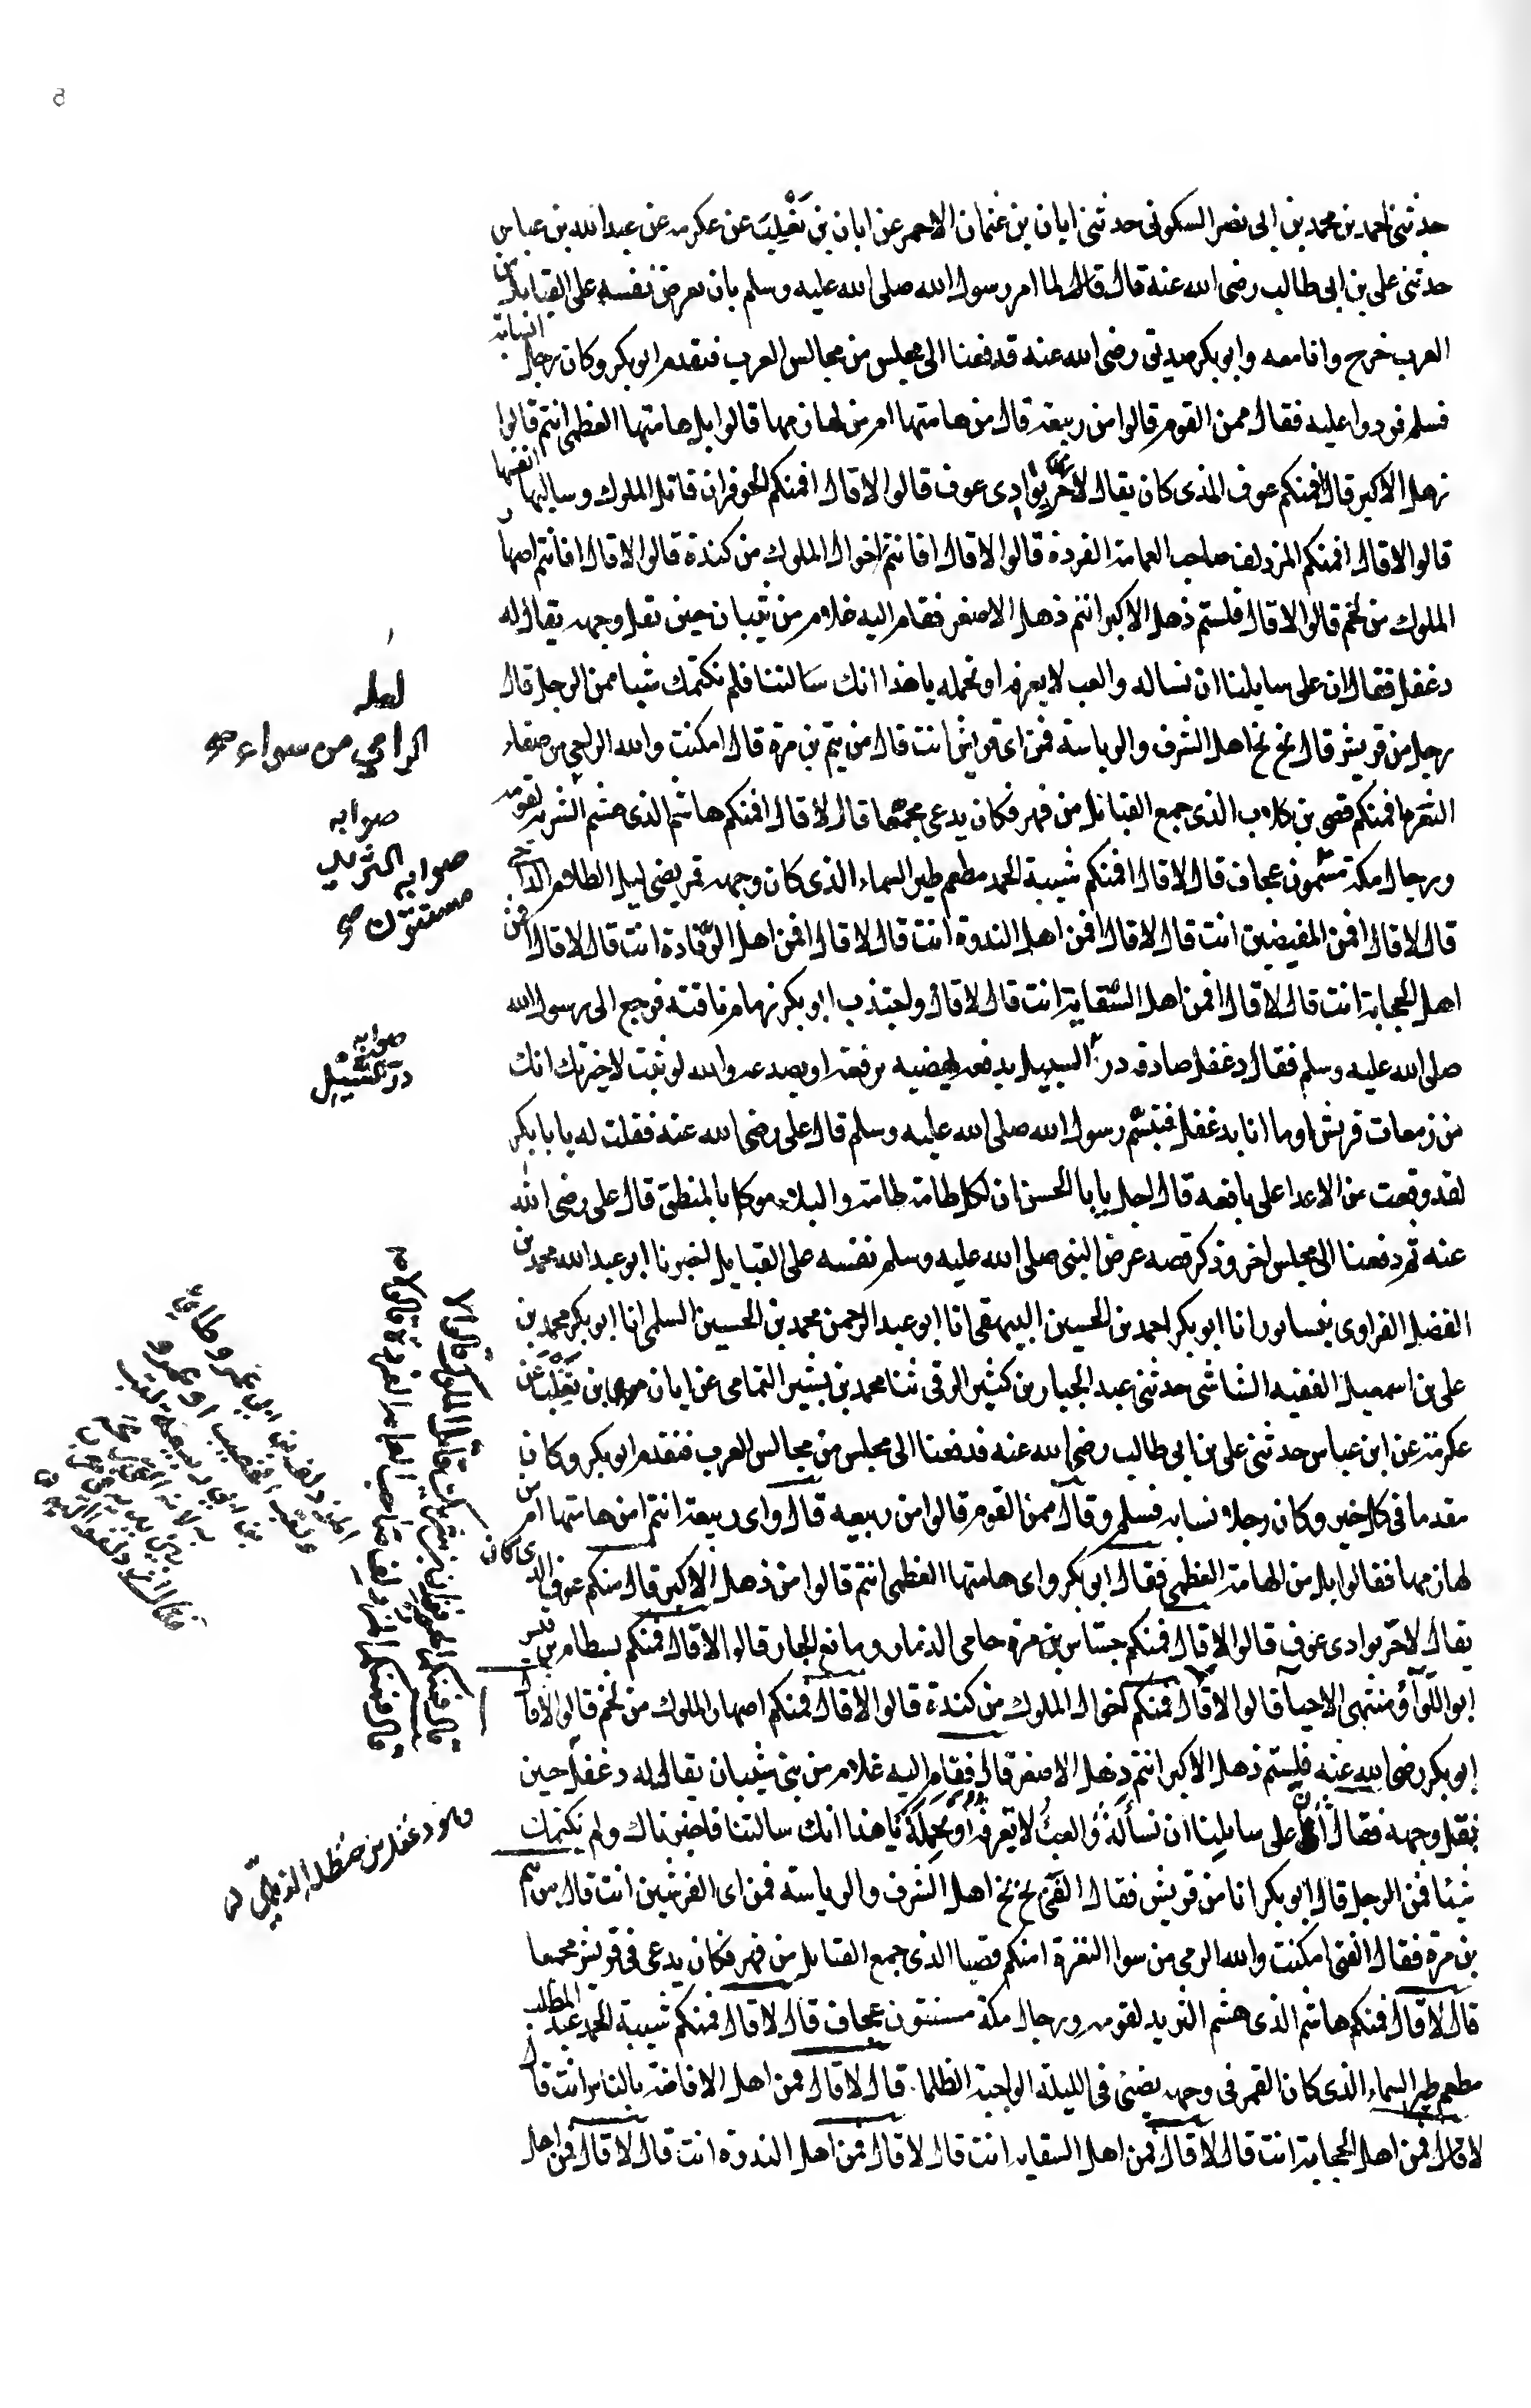 حدثني احمد بن محمد بن ابى نصر السكونى حدثنى ابان بن عثمان الاحمر عن ابان بن تغلب عن عكرمه عن عبد الله بن عباس
حدثنى على بن ابى طالب رضى الله عنه قال قال لما امر رسول الله صلى الله عليه وسلم بان يعرض نفسه على القبايل من
العرب خرج وانا معه وابو بكر صديق رضى الله عنه فدفعنا الى مجلس من مجالس العرب فتقدم ابو بكر وكان رجلا نسابة
فسلم فردوا عليه فقال ممن القوم قالوا من ربيعه قال من هامتها ام من لهازمها قالوا بل هامتها العظمى انتم قالوا
ذهل الاكبر قال افمنكم عوف الذى كان يقال لا حر بوادى عوف قالوا لا قال افمنكم الحوفزان قاتل الملوك وسالبها انفسها
قالوا لا قال افمنكم المزدلف صاحب العمامة الفردة قالوا لا قال افانتم اخوال الملوك من كندة قالوا لا قال افانتم اصهار
الملوك من لخم قالوا لا قال فلستم ذهل الاكبر انتم ذهل الاصغر فقام اليه غلام من شيبان حين بقل وجهه يقال له
دغفل فقال ان على سايلنا ان نساله والعب لا يعرفه او نحمله يا هذا انك سالتنا فلم نكتمك شيا ممن الرجل قال
رجل من قريش قال بخ بخ اهل الشرف والرياسة فمن اى قريش انت قال من تيم بن مرة قال امكنت والله الرامى من صفاء
الثغرة افمنكم قصى بن كلاب الذى جمع القبائل من فهر فكان يدعى مجمعا قال لا قال افمنكم هاشم الذى هشم الثريد لقومه
ورجال مكة مسنتون عجاف قال لا قال افمنكم شيبة الحمد مطعم طير السماء الذى كان وجهه قمر يضى ليل الظلام الداجى
قال لا قال افمن المفيضين انت قال لا قال افمن اهل الندوة انت قال لا قال افمن اهل الرفادة انت قال لا قال افمن
اهل الحجابة انت قال لا قال افمن اهل السقاية انت قال لا قال واجتذب ابو بكر زمام ناقته فرجع الى رسول الله
صلى الله عليه وسلم فقال دغفل صادف در السبيل يدفعه يهضبه يرفعه او يصدعه والله لو ثبت لاخبرتك انك
من زمعات قريش او ما انا بدغفل فتبسم رسول الله صلى الله عليه وسلم قال على رضى الله عنه فقلت له يا با بكر
لقد وقعت من الاعرابى على باقعه قال اجل يا با الحسن ان لكل طامة طامة والبلاء موكل بالمنطق قال على رضى الله
عنه ثم دفعنا الى مجلس اخر وذكر قصه عرض النبى صلى الله عليه وسلم نفسه على القبايل اخبرنا ابو عبد الله محمد بن
الفضل الفراوى بنيسابور انا ابو بكر احمد بن الحسين البيهقى انا ابو عبد الرحمن محمد بن الحسين السلمى انا ابو بكر محمد بن
على بن اسمعيل الفقيه الشاشى حدثنى عبد الجبار بن كثير الرقى ثنا محمد بن بشير اليمامى عن ابان بن تغلب عن
عكرمة عن ابن عباس حدثنى على بن ابى طالب رضى الله عنه فدفعنا الى مجلس من مجالس العرب فتقدم ابو بكر وكان
مقدما فى كل خير وكان رجلا نسابه فسلم وقال ممن القوم قالوا من ربيعه قال واى ربيعة انتم امن هامتها ام من
لهازمها فقالوا بل من الهامة العظمى فقال ابو بكر واى هامتها العظمى انتم قالوا من ذهل الاكبر قال منكم عوف الذى كان
يقال لا حر بوادى عوف قالوا لا قال فمنكم جساس بن مرة حامى الذمار ومانع الجار قالوا لا قال فمنكم بسطام بن قيس
ابو اللوآؤ منتهى الاحيآ قالوا لا قال فمنكم اخوال الملوك من كندة قالوا لا قال فمنكم اصهار الملوك من لخم قالوا لا قال
ابو بكر رضى الله عنه فلستم ذهل الاكبر انتم ذهل الاصغر قال فقام اليه غلام من بنى شيبان يقال له دغفل حين
بقل وجهه فقال ان على سايلنا ان نسأله والعب لا يعرفه او نحمله يا هذا انك سالتنا فاخبرناك ولم نكتمك
شيئا فمن الرجل قال ابو بكر انا من قريش فقال الفتى بخ بخ اهل الشرف والرياسة فمن اى القرشين انت قال من تيم
بن مرة فقال الفتى امكنت والله الرمى من سوا الثغرة امنكم قصيا الذى جمع القبايل من فهر فكان يدعى فى قريش مجمعا
قال لا قال فمنكم هاشم الذى هشم الثريد لقومه ورجال مكة مسنتون عجاف قال لا قال فمنكم شيبة الحمد عبد المطلب
مطعم طير السماء الذى كان القمر فى وجهه يضئ فى الليلة الداجية الظلما قال لا قال فمن اهل الافاضة بالناس انت قال
لا قال فمن اهل الحجابة انت قال لا قال فمن اهل السقايه انت قال لا قال فمن اهل الندوة انت قال لا قال فمن اهل
لعله
الرامي من سواء صح
صوابه
الثريد
صوابه
مسنتون صح
صوابه
در السيل
قال فمنكم الحوفزان بن شريك قاتل الملوك قالوا لا
قال فمنكم المزدلف صاحب العمامة الفردة قالوا لا
وهو دغفل بن حنظلة